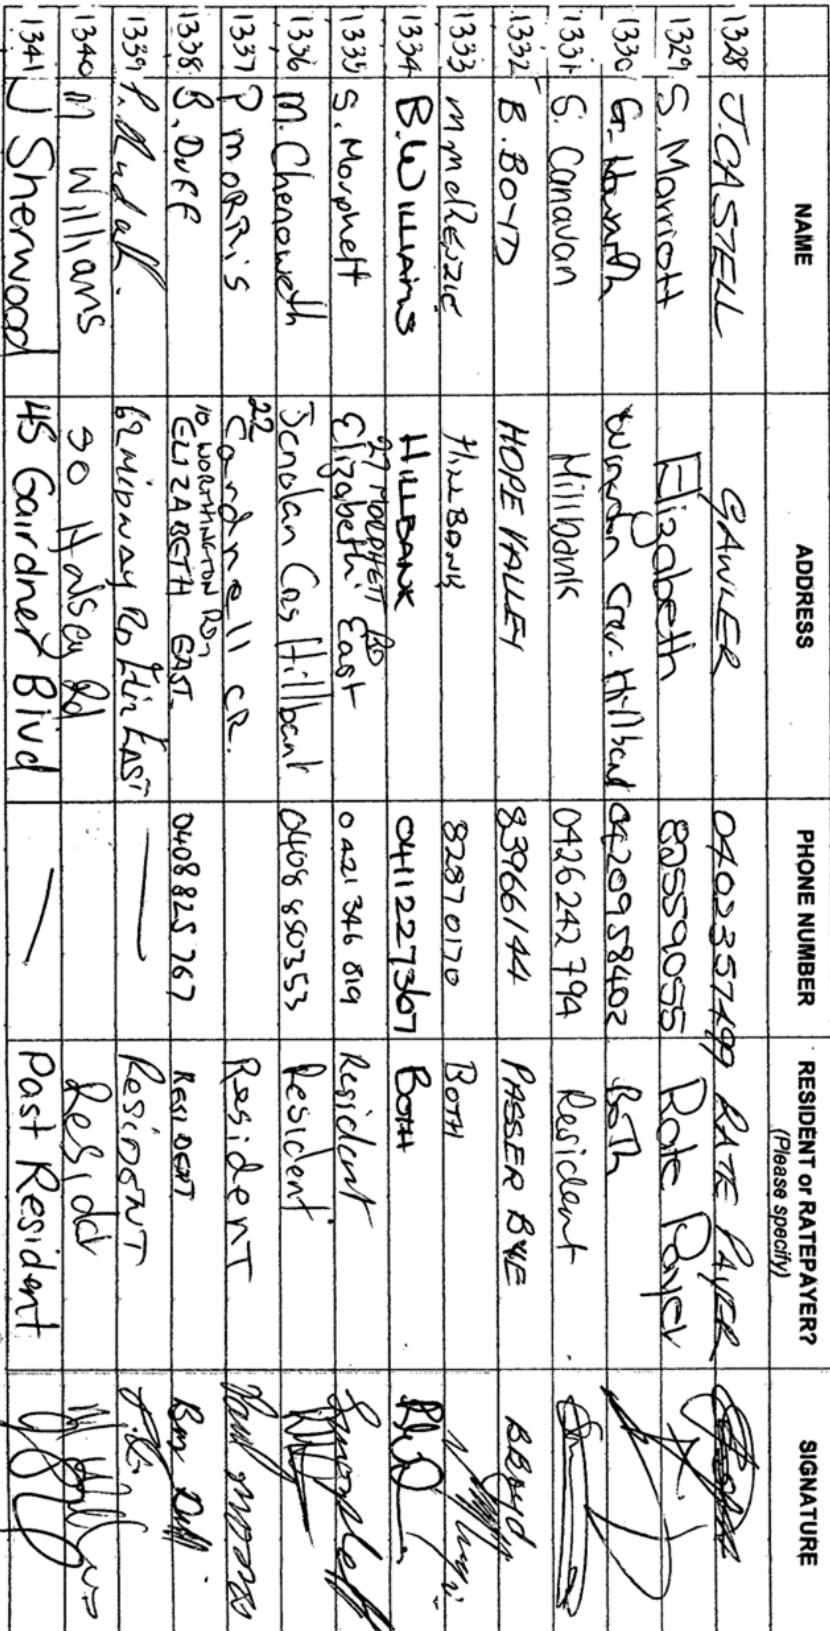 NAME ADDRESS PHONE NUMBER RESIDENT or RATEPAYER? SIGNATURE
(Please specify)
1328 J. CASTELL GAWLER 0402357499 RATE PAYER
1329 S. Marriott Elizabeth 82559055 Rate Payer
1330 Cres. Hillbank 0420958402 Both
1331 S. Canavan Hillbank 0426242794 Resident
1332 B. BOYD HOPE VALLEY 83966144 PASSER BYE BBoyd
1333 M McKENZIE HILLBANK 82870170 BOTH
1334 B. WILLIAMS HILLBANK 0411227367 BOTH
1335 S. Morphett 27 MORPHETT RD
Elizabeth East 0421 346 819 Resident
1336 M. Chenoweth Jenolan Cres Hillbank 0408 850353 Resident
1337 P MORRIS 22 Cardnell CR. Resident
1338 B. Duff 10 WORTHINGTON RD,
ELIZABETH EAST. 0408 825 767 RESIDENT Bm Duff
1339 62 MIDWAY RD Eliz EAST — RESIDENT
1340 M Williams 30 Halsey Rd Resident
1341 J Sherwood 45 Gairdner Blvd — Past Resident